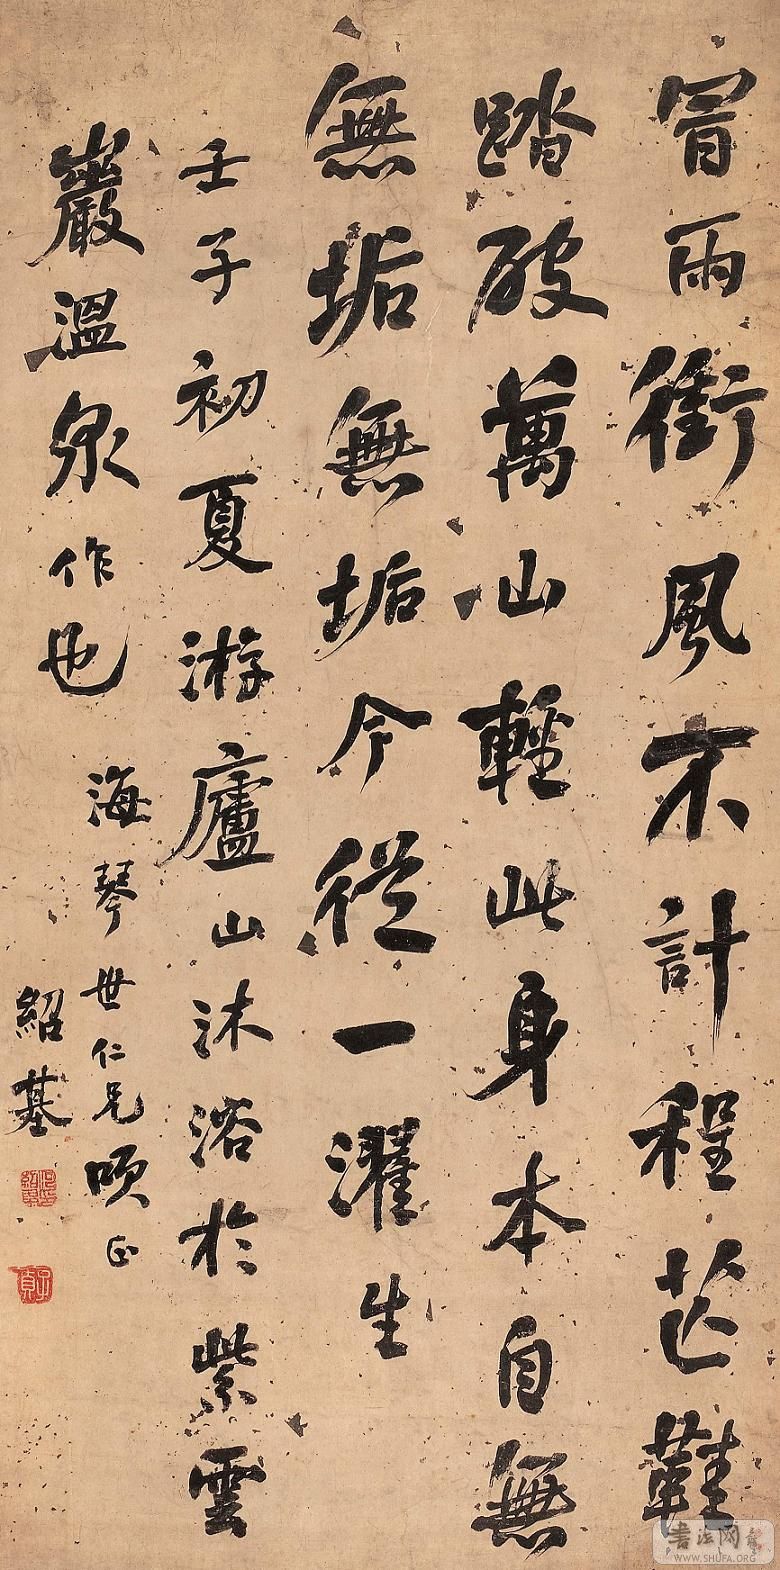 冒雨衝風不計程芒鞋
踏破萬山輕此身本自無
無垢無垢今從一濯生
壬子初夏游廬山沐浴於紫雲
巖溫泉作也
海琴世仁兄正
紹基
子貞
书法网
WWW.SHUFA.ORG